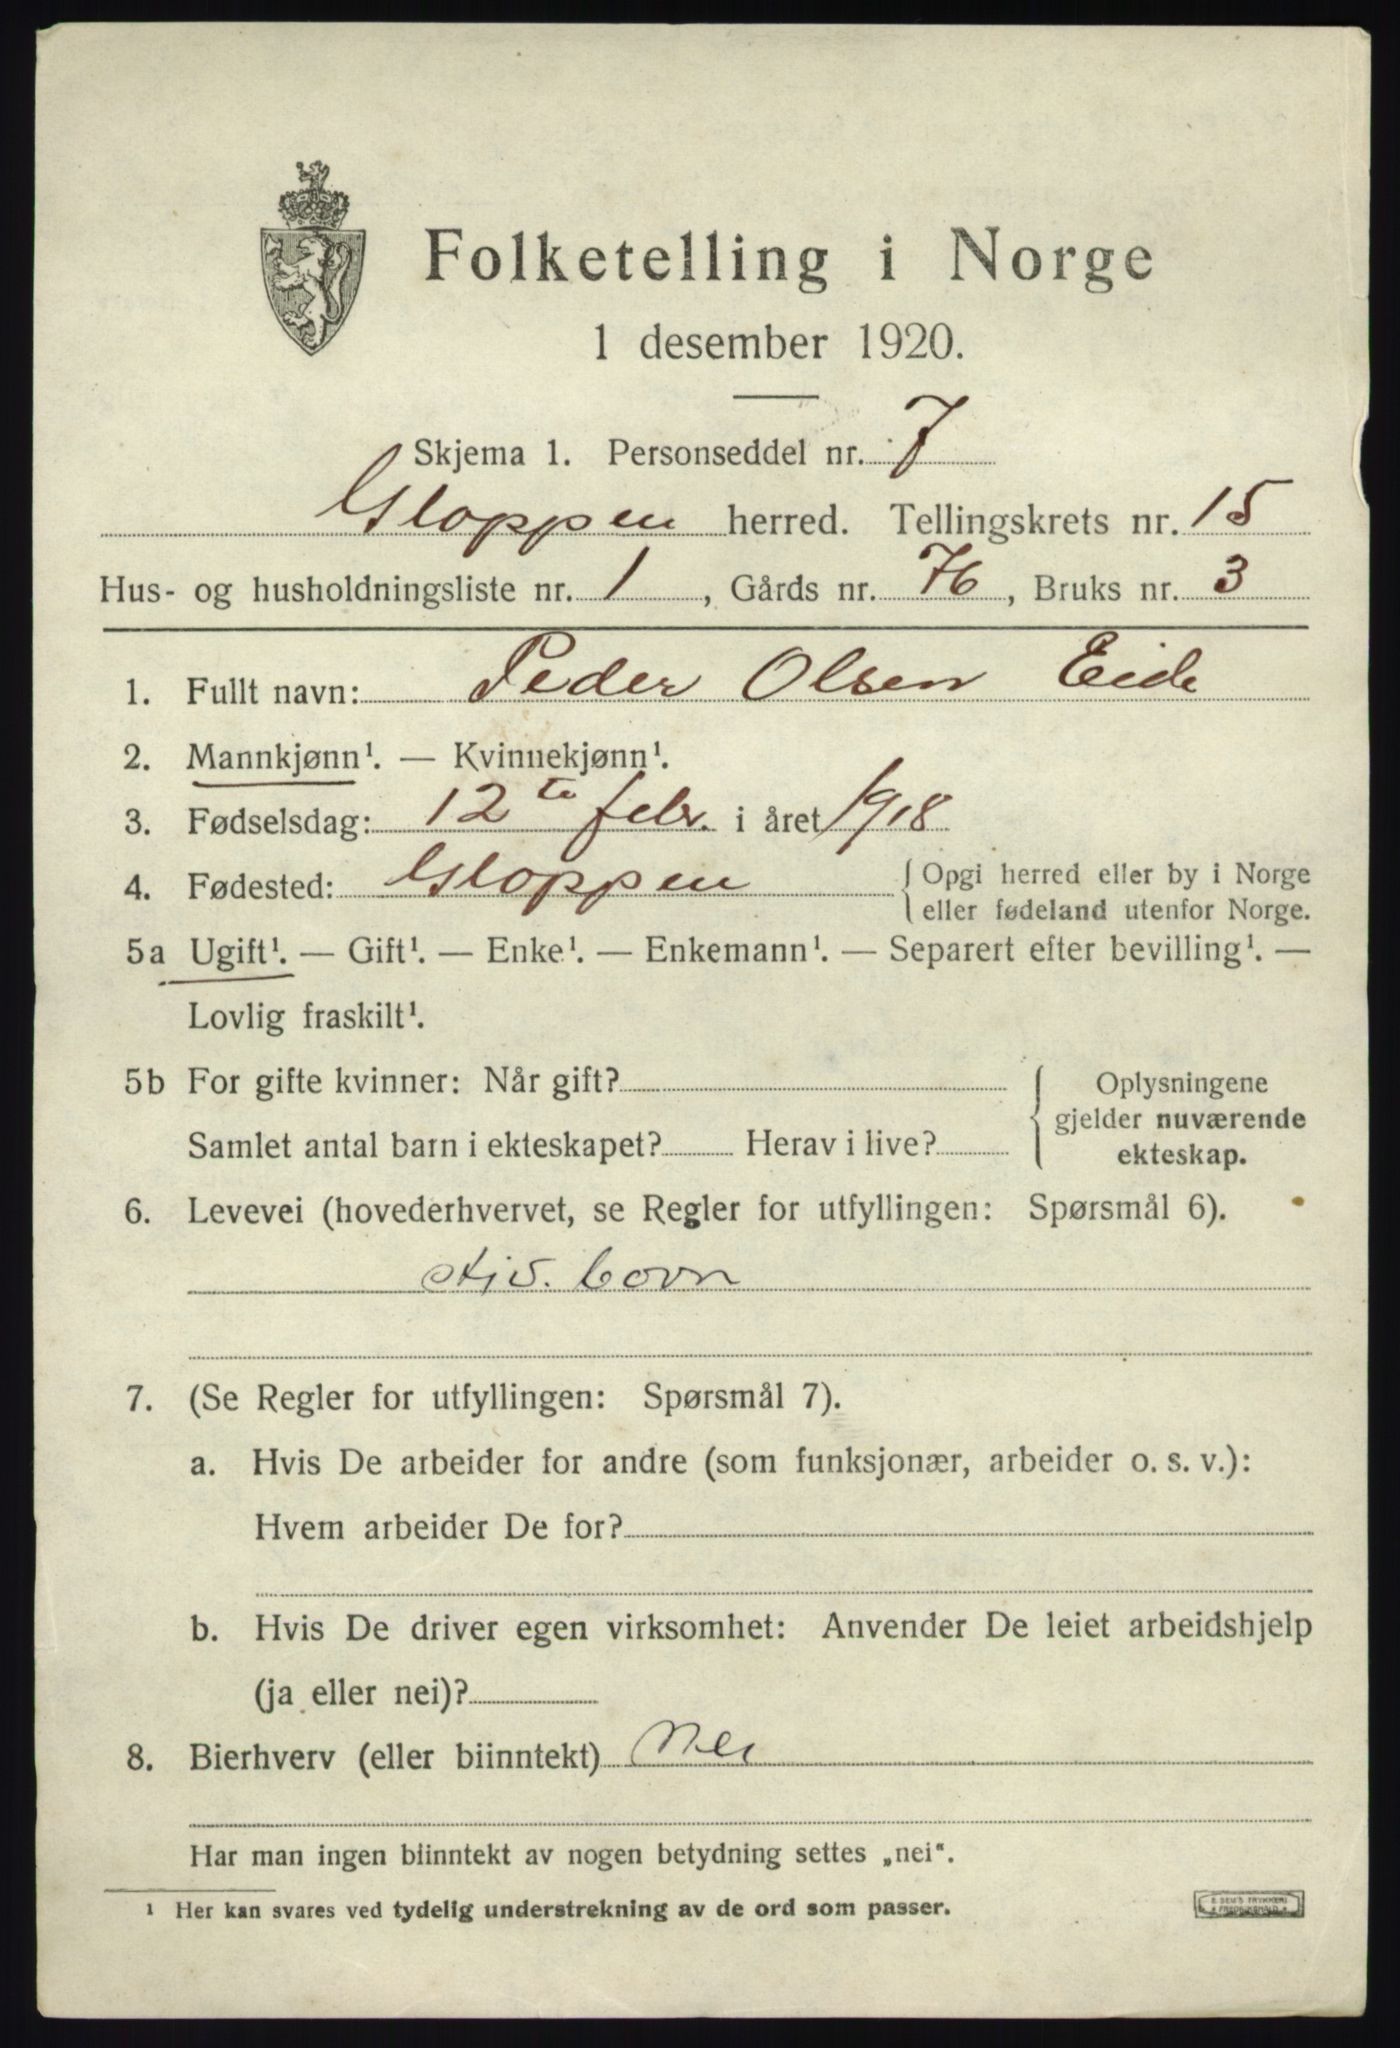 Folketelling i Norge
1 desember 1920.
Skjema 1. Personseddel nr. 7
Gloppen herred. Tellingskrets nr. 15
Hus- og husholdningsliste nr. 1, Gårds nr. 76, Bruks nr. 3
1. Fullt navn: Peder Olsen Eide
2. Mannkjønn¹. — Kvinnekjønn¹.
3. Fødselsdag: 12te febr. i året 1918
4. Fødested: Gloppen { Opgi herred eller by i Norge
eller fødeland utenfor Norge.
5a Ugift¹. — Gift¹. — Enke¹. — Enkemann¹. — Separert efter bevilling¹. —
Lovlig fraskilt¹.
5b For gifte kvinner: Når gift?
Samlet antal barn i ekteskapet? Herav i live?
{ Oplysningene
gjelder nuværende
ekteskap.
6. Levevei (hovederhvervet, se Regler for utfyllingen: Spørsmål 6).
7. (Se Regler for utfyllingen: Spørsmål 7).
a. Hvis De arbeider for andre (som funksjonær, arbeider o. s. v.):
Hvem arbeider De for?
b. Hvis De driver egen virksomhet: Anvender De leiet arbeidshjelp
(ja eller nei)?
8. Bierhverv (eller biinntekt) Nei
Har man ingen biinntekt av nogen betydning settes „nei“.
¹ Her kan svares ved tydelig understrekning av de ord som passer.